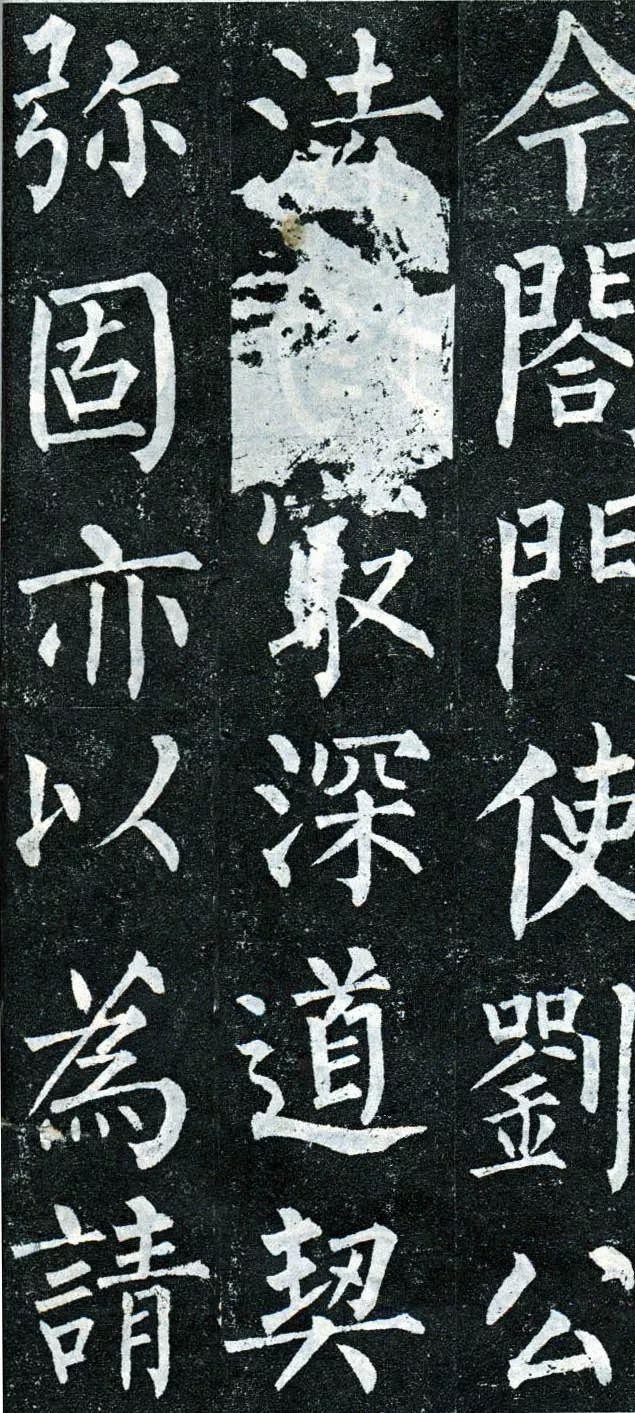 今閤門使劉公
法冣深道契
弥固亦以為請